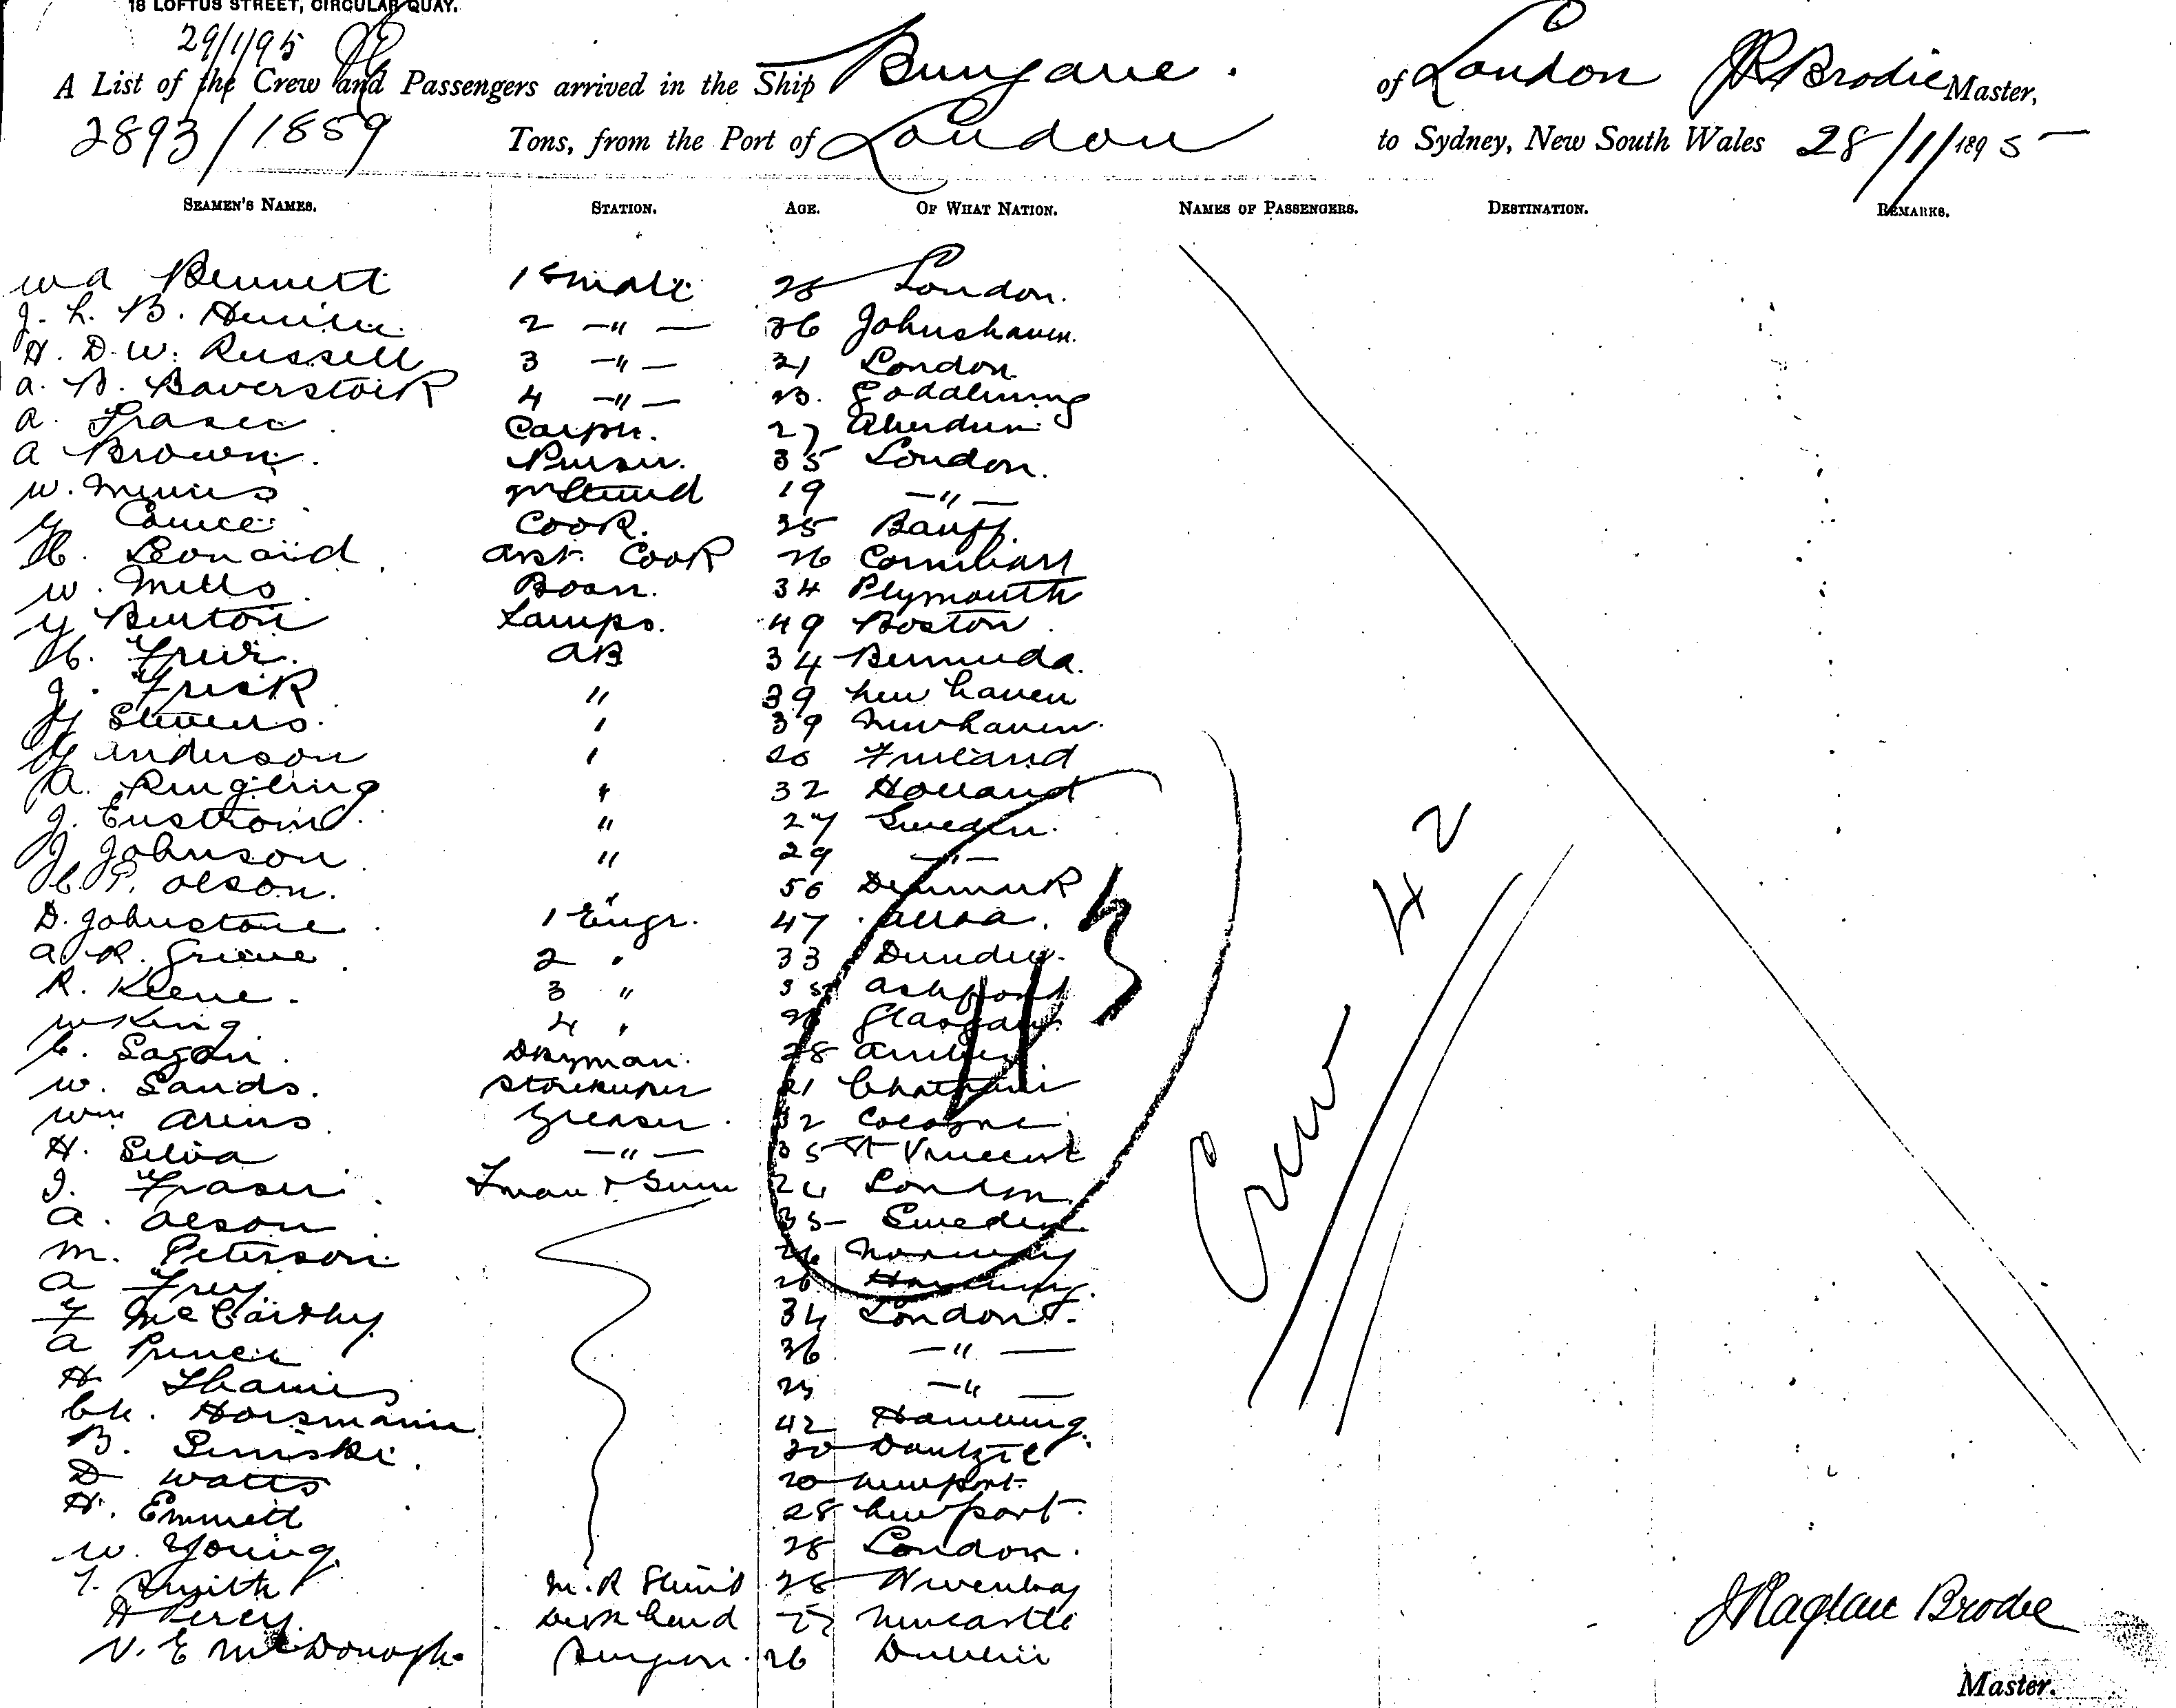 18 LOFTUS STREET, CIRCULAR QUAY.
29/1/95
A List of the Crew and Passengers arrived in the Ship Bungaree. of London JR Brodie Master,
2893/1859 Tons, from the Port of London to Sydney, New South Wales 28/1/1895
SEAMEN'S NAMES. STATION. AGE. OF WHAT NATION. NAMES OF PASSENGERS. DESTINATION. REMARKS.
W A Bennett 1st mate 28 London.
J. L. B. 2 -"- 36 Johnshaven.
H. D. W. Russell 3 -"- 21 London
A. B. Baverstock 4 -"- 23. Godalming
A. Fraser Carptr. 27 Aberdeen
A Brown. Purser. 35 London.
W. Menies 19 -"-
Cook. 25 Banff.
H. Leonard Asst. Cook 26
W. Mills Bosn. 34 Plymouth
G Burton Lamps. 49 Boston
H. AB 34 Bermuda.
J. Frisk " 39 New haven
H Stevens. " 39 Newhaven.
G Anderson " 26 Finland
A. Ringling " 32 Holland
J. Enstrom " 27 Sweden.
J Johnson " 29 -"-
C P. Olson. " 56 Denmark
D. Johnstone 1 Engr. 47 Alloa.
A R. Grieve 2 " 33 Dundee.
R. Keene. 3 " 35 Ashford
W King 4 " 26 Glasgow
Dkyman. 28
W. Sands. Storekeeper 21 Chatham
Wm Arens Greaser. 32 Cologne
H. Silva -"- 35 St Vincent
J. Fraser Fman & Trimr 24 London
A. Olson 35 Sweden.
M. Peterson 26 Norway
A Frey 26 Hamburg.
F McCarthy 34 London.
A Prince 36 -"-
H -"-
Ch. Horsmann 42 Hamburg.
B. 30 Dantzic
D Watts 20 Newport.
H. Emmett 28 Newport.
W. Young 28 London.
T. Smith M.R Stew'd 28
H Percy 27 Newcastle
V. E McDonogh. Surgeon. 26 Dublin
113
Crew 42
J Raglan Brodie
Master.